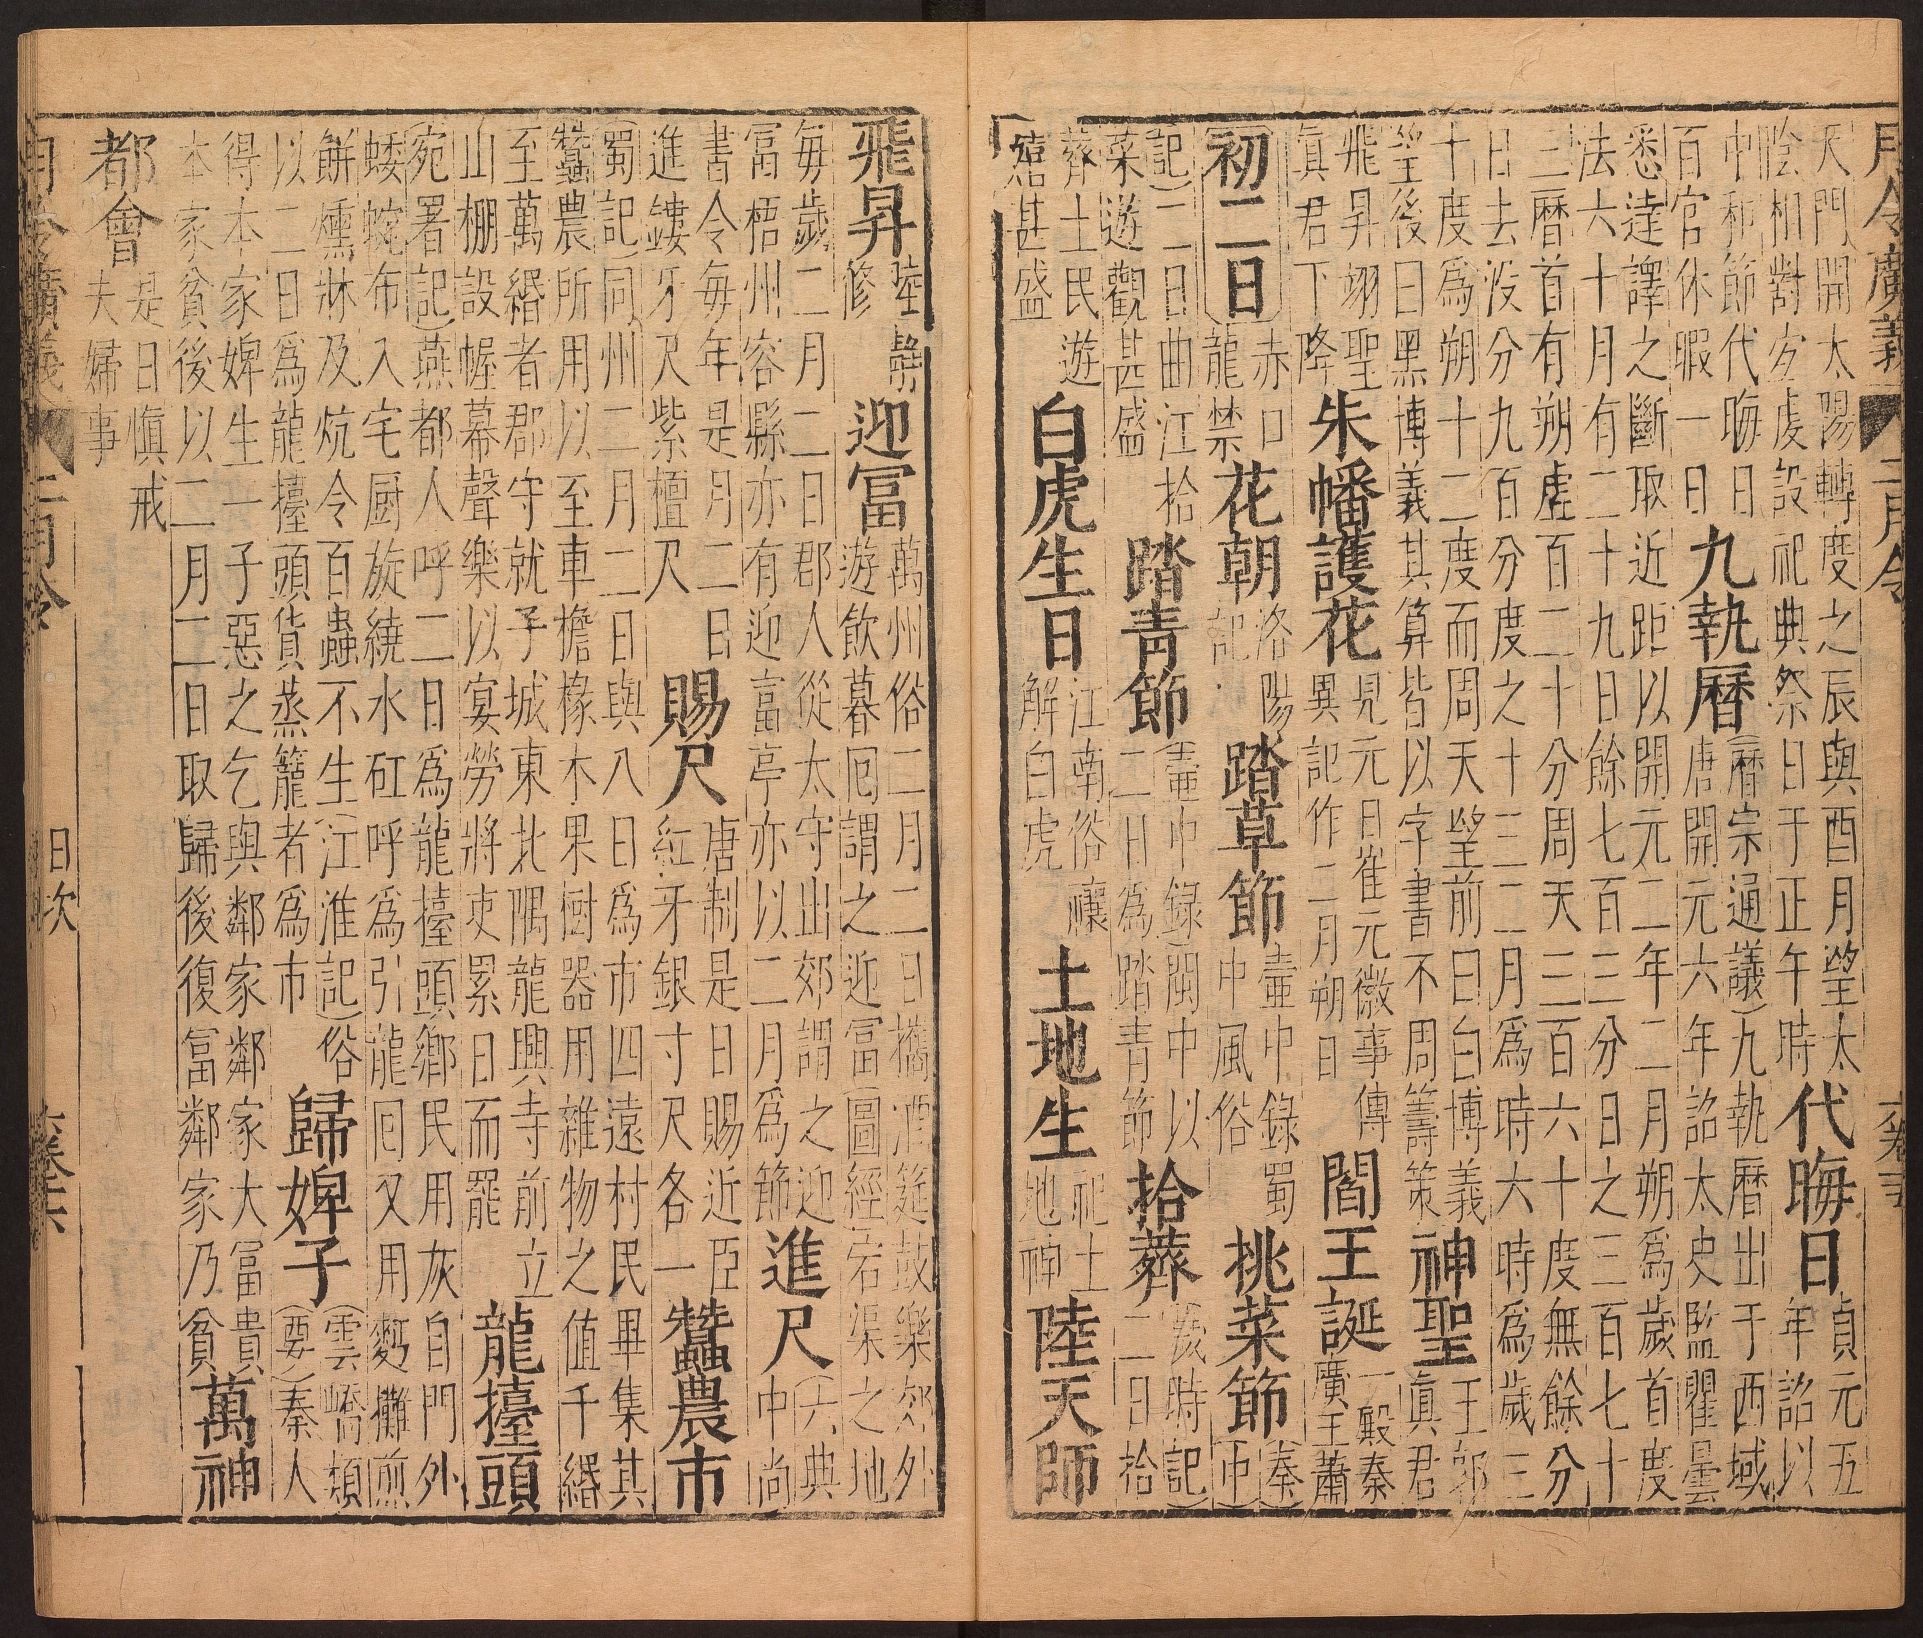 月令廣義 二月令
天門開太陽轉度之辰與酉月望太
陰相對宜虔設祀典祭日于正午時 代晦日 貞元五年詔以
中和節代晦日
百官休暇一日 九執曆 曆宗通議九執曆出于西域
唐開元六年詔太史監瞿曇
悉達譯之斷取近距以開元二年二月朔為歲首度
法六十月有二十九日餘七百三分日之三百七十
三曆首有朔虛百二十分周天三百六十度無餘分
日去沒分九百分度之十三二月為時六時為歲三
十度為朔十二度而周天望前曰白博義
望後曰黑博義其算皆以字書不周籌策 神聖 王郭真君
飛昇翊聖
真君下降 朱幡護花 見元日崔元微事傳
異記作二月朔日 閻王誕 一殿秦廣王蕭
初二日 赤口
龍禁 花朝 洛陽記 踏草節 壺中錄蜀中風俗 挑菜節 秦中
記二日曲江拾
菜遊觀甚盛 踏青節 壺中錄閩中以
二日為踏青節 拾蔡 歲時記
二日拾
蔡士民遊
嬉甚盛 白虎生日 江南俗禳
解白虎 土地生 祀土
地神 陸天師
飛昇 陸修靜 迎富 萬州俗二月二日攜酒筵鼓樂郊外
遊飲暮囘謂之迎富圖經宕渠之地
每歲二月二日郡人從太守出郊謂之迎
富梧州容縣亦有迎富亭亦以二月為節 進尺 六典中尚
書令每年是月二日
進鏤牙尺紫檀尺 賜尺 唐制是日賜近臣
紅牙銀寸尺各一 蠶農市
蜀記同州二月二日與八日為市四遠村民畢集其
蠶農所用以至車檐椽木果樹器用雜物之值千緡
至萬緡者郡守就子城東北隅龍興寺前立
山棚設幄幕聲樂以宴勞將吏累日而罷 龍擡頭
宛署記燕都人呼二日為龍擡頭鄉民用灰自門外
蜲蛇布入宅厨旋繞水矼呼為引龍囘又用麪攤煎
餅燻牀及炕令百蟲不生江淮記俗
以二日為龍擡頭貨蒸籠者為市 歸婢子 雲嶠類
要秦人
得本家婢生一子惡之乞與鄰家鄰家大富貴
本家貧後以二月二日取歸後復富鄰家乃貧 萬神
都會 是日慎戒
夫婦事
月令廣義 二月令 日次